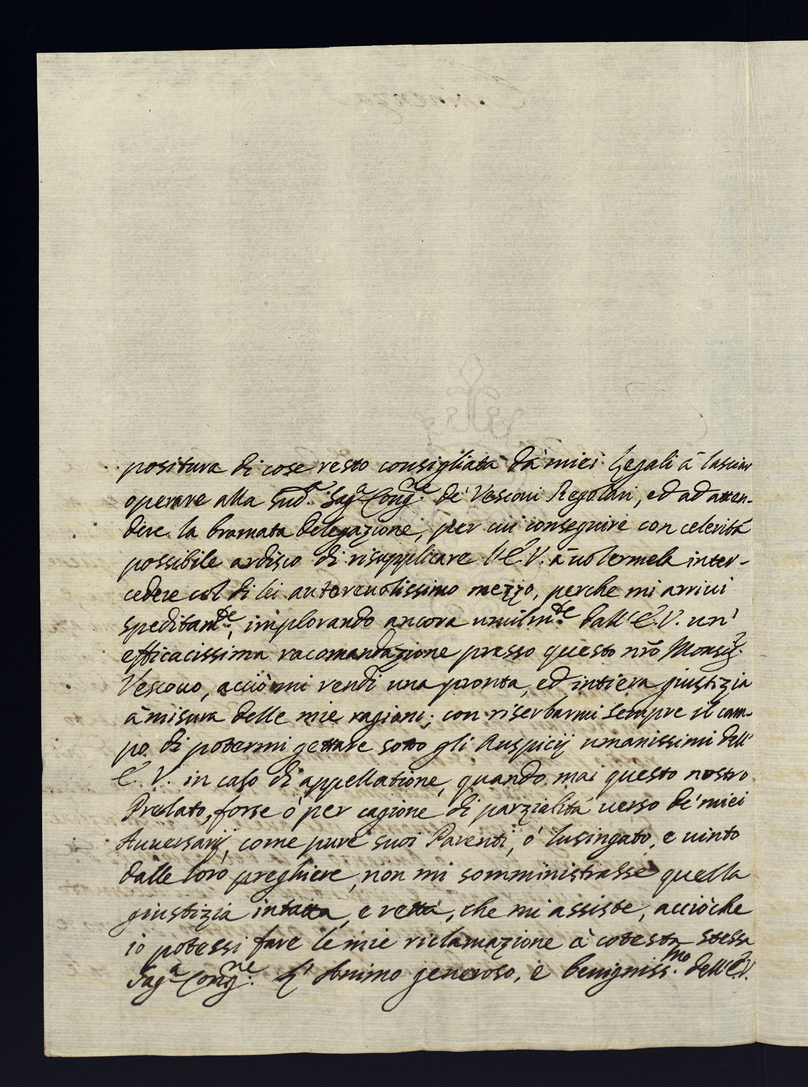 positura di cose resto consigliata da' miei Legali à lasciar
operare alla sud.ª Sag.ª Cong.ne de' Vescovi Regolari, ed ad atten-
dere la bramata delegazione, per cui conseguire con celerità
possibile ardisco di risupplicare l'E.V. à volermela inter-
cedere col di lei autorevolissimo mezzo, perche mi arrivi
speditam.te, implorando ancora umilm.te dall'E.V. un'
efficacissima racomandazione presso questo nrõ Monsig.r
Vescovo, acciò mi rendi una pronta, ed intiera giustizia
à misura delle mie ragioni; con riserbarmi sempre il cam-
po di potermi gettare sotto gli Auspicij umanissimi dell'
E.V. in caso di appellatione, quando mai questo nostro
Prelato, forse ò per cagione di parzialità verso de' miei
Avversarij, come pure suoi Parenti, ò lusingato, e vinto
dalle loro preghiere, non mi somministrasse quella
giustizia intatta, e retta, che mi assiste, acciòche
io potessi fare le mie riclamazione à cotesta stessa
Sag.ª Cong.ne. L'Animo generoso, e benigniss.mo dell'E.V.
Eminenza